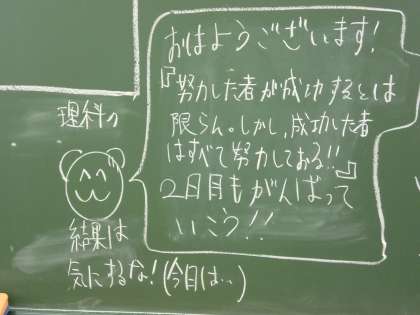 おはようございます!
『努力した者が成功するとは
限らん。しかし、成功した者
はすべて努力しておる!!』
2日目もがんばって
いこう!!
理科の
結果は
気にするな!(今日は…)